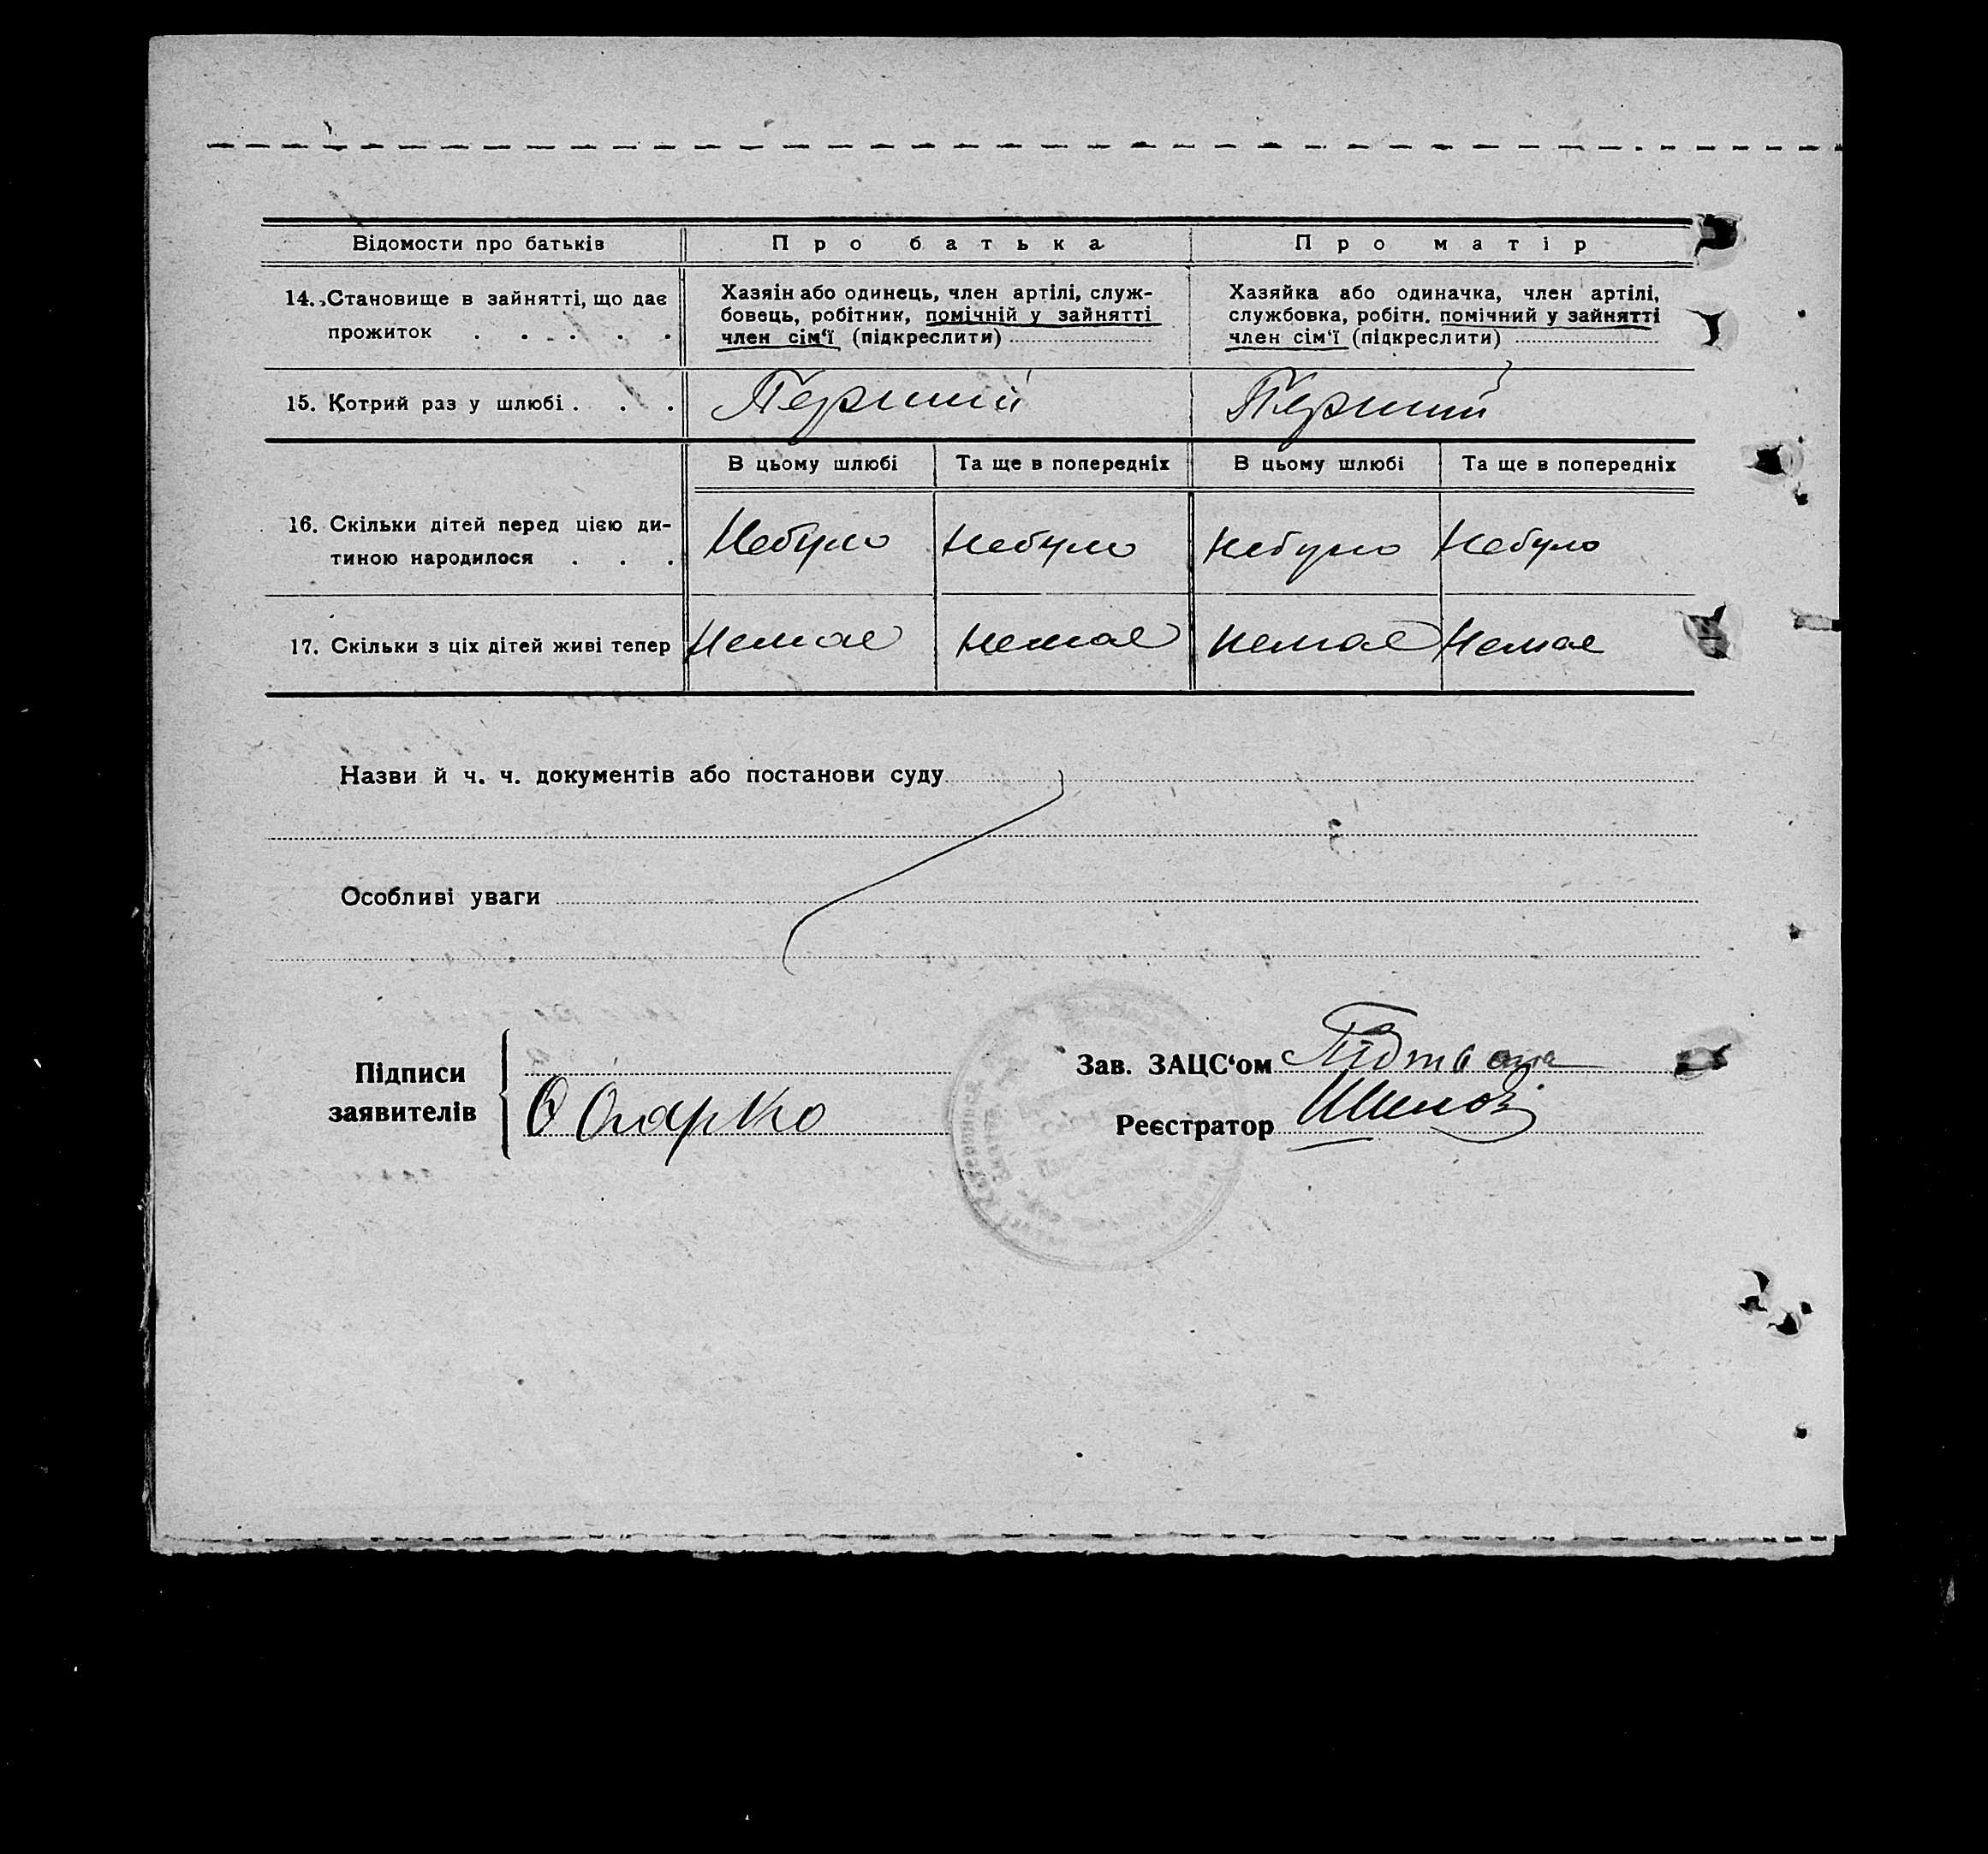 Відомости про батьків Про батька Про матір
14. Становище в зайнятті, що дає прожиток . . . . .
Хазяін або одинець, член артілі, служ-
бовець, робітник, помічній у зайнятті
член сім‘ї (підкреслити)
Хазяйка або одиначка, член артілі,
службовка, робітн. помічний у зайнятті
член сім‘ї (підкреслити)
15. Котрий раз у шлюбі . . . Перший Перший
В цьому шлюбі Та ще в попередніх В цьому шлюбі Та ще в попередніх
16. Скільки дітей перед цією ди-
тиною народилося . . .
Небуло Небуло Небуло Небуло
17. Скільки з ціх дітей живі тепер Немає Немає Немає Немає
Назви й ч. ч. документів або постанови суду
Особливі уваги
Підписи
заявителів
Зав. ЗАЦС‘ом
Реєстратор